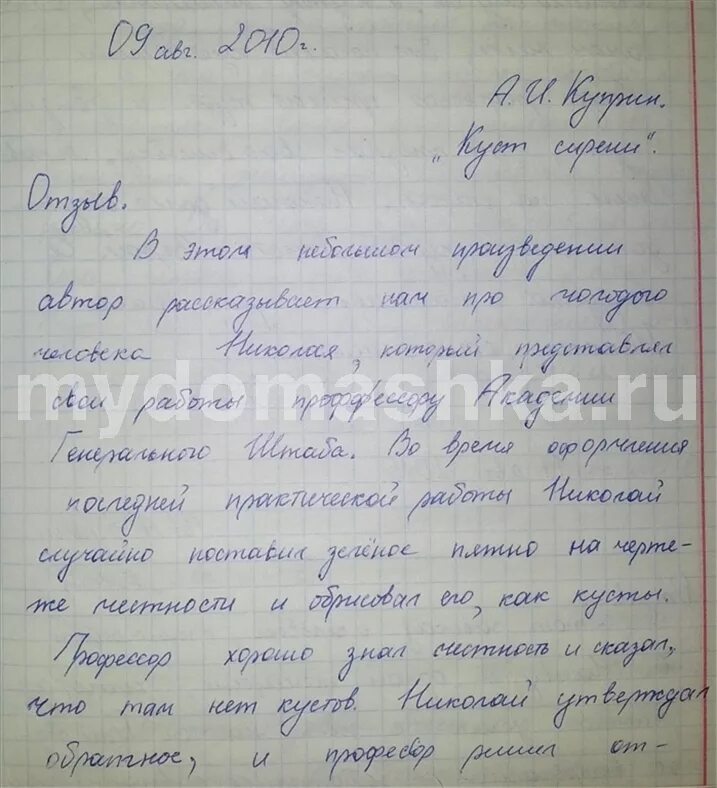 09 авг. 2010г.
А.И. Куприн.
"Куст сирени".
Отзыв.
В этом небольшом произведении
автор рассказывает нам про молодого
человека Николая, который представлял
свои работы профффессору Академии
mydomashka.ru
Генерального Штаба. Во время оформления
последней практической работы Николай
случайно поставил зелёное пятно на черте-
же местности и обрисовал его, как кусты.
Профессор хорошо знал местность и сказал,
что там нет кустов. Николай утверждал
обратное, и професор решил от-